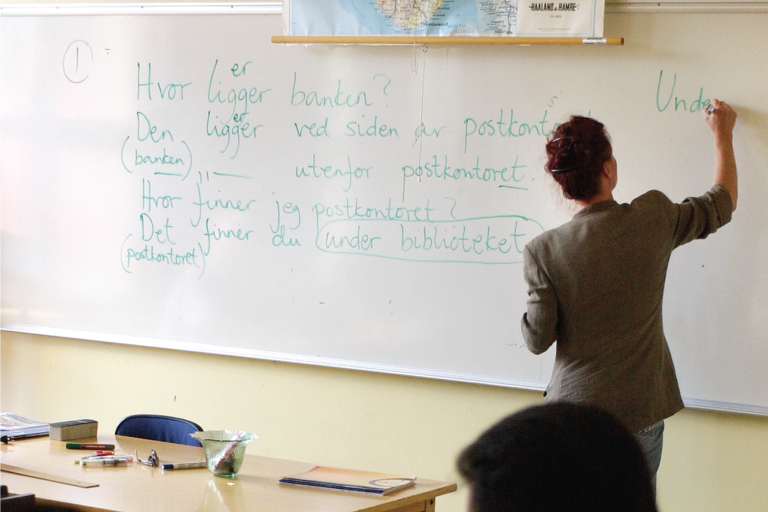 HAALAND OG RAMBE
1
er
Hvor ligger banken?
er
Den ligger ved siden av postkontoret
(banken) utenfor postkontoret.
Hvor finner jeg postkontoret?
Det finner du under biblioteket
(postkontoret)
Unde